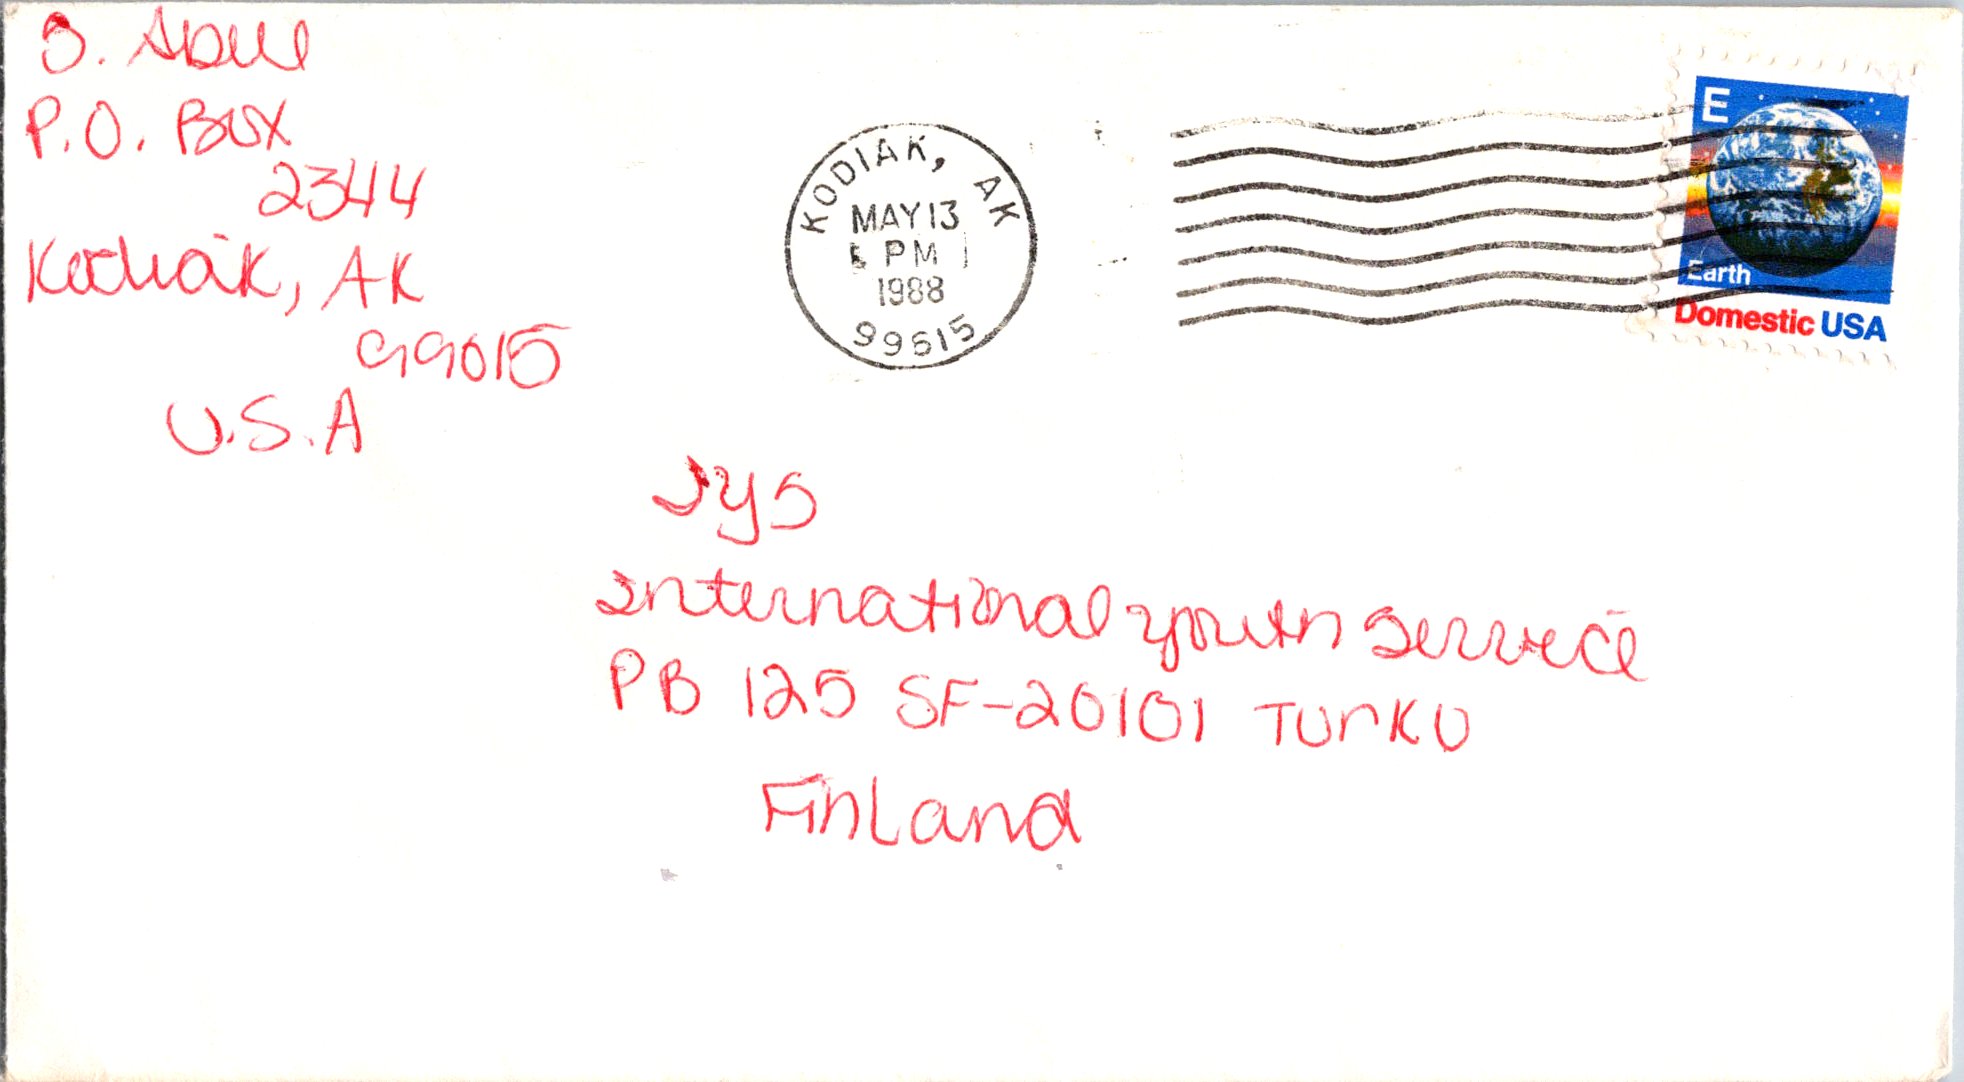 S. Abell
P.O. Box
2344
Kodiak, AK
99615
U.S.A
KODIAK, AK
MAY 13
PM
1988
99615
E
Earth
Domestic USA
IYS
International Youth Service
PB 125 SF-20101 TURKU
Finland